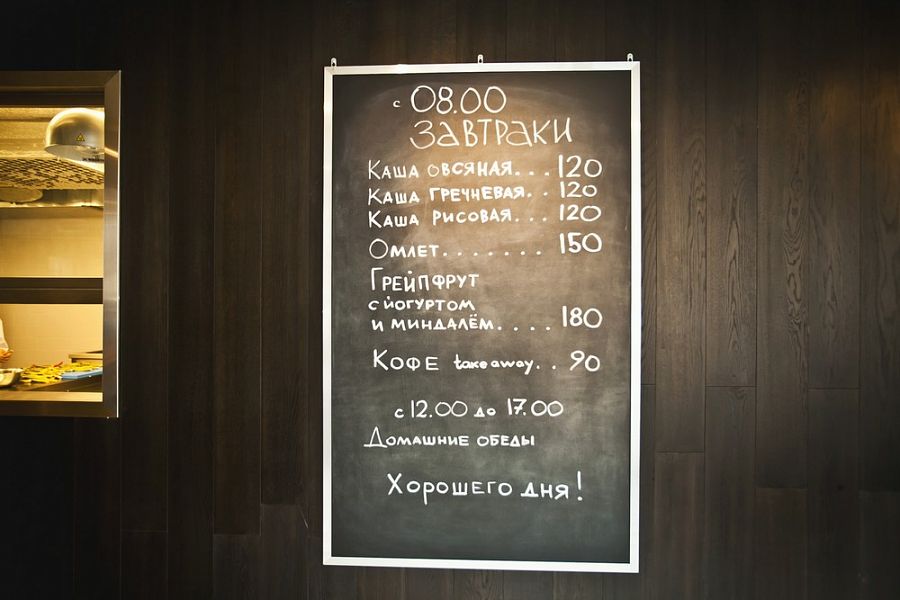 с 08.00
ЗАВТРАКИ
КАША ОВСЯНАЯ... 120
КАША ГРЕЧНЕВАЯ.. 120
КАША РИСОВАЯ... 120
ОМЛЕТ....... 150
ГРЕЙПФРУТ
С ЙОГУРТОМ
И МИНДАЛЁМ.... 180
КОФЕ take away.. 90
с 12.00 до 17.00
ДОМАШНИЕ ОБЕДЫ
ХОРОШЕГО ДНЯ!